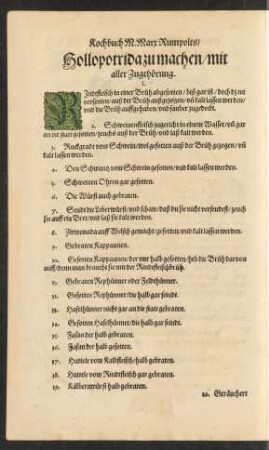 Kochbuch M. Marx Rumpolts/
Hollopotrida zu machen/ mit
aller Zugehörung.
1.
RIndtfleisch in einer Brüh abgesotten/ biß gar ist/ doch dz nit
versotten/ auß der Brüh außgezogen/ vñ kalt lassen werden/
vnd die Brüh auffgehaben/ vnd sauber zugedeckt.
2. Schweinenfleisch zugericht in einem Wasser/ vñ gar
an die statt gesotten/ zeuchs auß der Brüh vnd laß kalt werden.
3. Ruckgradt vom Schwein/ wol gesotten auß der Brüh gezogen/ vñ
kalt lassen werden.
4. Den Schwantz vom Schwein gesotten/ vnd kalt lassen werden.
5. Schweinen Ohren gar gesotten.
6. Die Würst auch gebraten.
7. Seudt die Leberwürst vnd schaw/ daß du sie nicht verseudest/ zeuch
sie auff ein Bret/ vnd laß sie kalt werden.
8. Zirwonada auff Welsch gemacht/ gesotten/ vnd kalt lassen werden.
9. Gebraten Kappaunen.
10. Gesotten Kappaunen/ der nur halb gesotten/ heb die Brüh darvon
auff/ denn man braucht sie mit der Rindtfleischbrüh.
11. Gebraten Rephüner oder Feldthüner.
12. Gesotten Rephüner/ die halb gar seindt.
13. Haselhüner nicht gar an die statt gebraten.
14. Gesotten Haselhüner/ die halb gar seindt.
15. Fasan der halb gebraten.
16. Fasan der halb gesotten.
17. Hattele vom Kalbfleisch/ halb gebraten.
18. Hattele vom Rindtfleisch gar gebraten.
19. Kälbernwürst halb gebraten.
20. Geräuchert